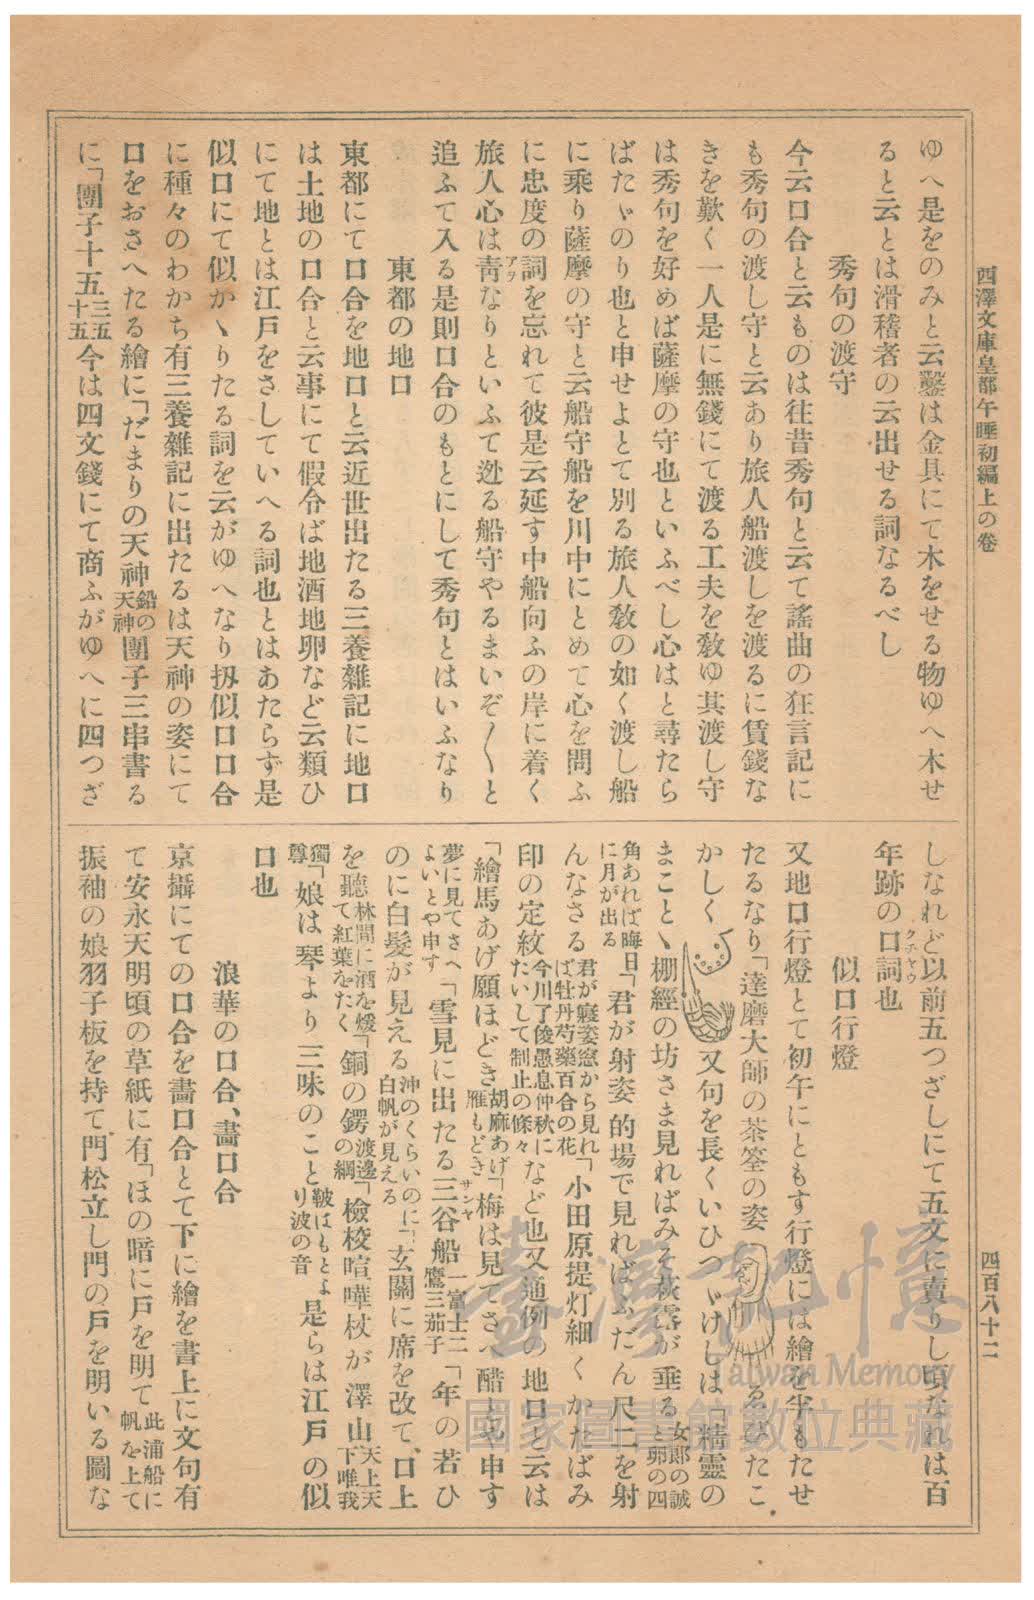 西澤文庫皇都午睡初編上の卷
四百八十二
ゆへ是をのみと云鑿は金具にて木をせる物ゆへ木せ
ると云とは滑稽者の云出せる詞なるべし
秀句の渡守
今云口合と云ものは往昔秀句と云て謠曲の狂言記に
も秀句の渡し守と云あり旅人船渡しを渡るに賃錢な
きを歎く一人是に無錢にて渡る工夫を敎ゆ其渡し守
は秀句を好めば薩摩の守也といふべし心はと尋たら
ばたゞのり也と申せよとて別る旅人敎の如く渡し船
に乘り薩摩の守と云船守船を川中にとめて心を問ふ
に忠度の詞を忘れて彼是云延す中船向ふの岸に着く
旅人心は靑アヲなりといふて迯る船守やるまいぞ〳〵と
追ふて入る是則口合のもとにして秀句とはいふなり
東都の地口
東都にて口合を地口と云近世出たる三養雜記に地口
は土地の口合と云事にて假令ば地酒地卵など云類ひ
にて地とは江戶をさしていへる詞也とはあたらず是
似口にて似かゝりたる詞を云がゆへなり扨似口口合
に種々のわかち有三養雜記に出たるは天神の姿にて
口をおさへたる繪に「だまりの天神鉛の天神團子三串書る
に「團子十五三五十五今は四文錢にて商ふがゆへに四つざ
しなれど以前五つざしにて五文に賣りし頃なれは百
年跡の口詞クチヤウ也
似口行燈
又地口行燈とて初午にともす行燈には繪を半もたせ
たるなり「達磨大師の茶筌の姿ゑびたこ
かしく又句を長くいひつゞけしは「精靈の
まことゝ棚經の坊さま見ればみそ萩露が垂る女郎の誠と卵の四
角あれば晦日に月が出る「君が射姿的場で見ればふだん尺二を射
んなさる君が寢姿窓から見れば牡丹芍藥百合の花「小田原提灯細くかたばみ
印の定紋今川了俊愚息仲秋にたいして制止の條々など也又通例の地口と云は
「繪馬あげ願ほどき胡麻あげ雁もどき「梅は見てさへ醋とや申す
夢に見てさへよいとや申す「雪見に出たる三谷サンヤ船一富士二鷹三茄子「年の若ひ
のに白髮が見える沖のくらいのに白帆が見える「玄關に席を改て、口上
を聽林間に酒を煖て紅葉をたく「銅の鍔渡邊の綱「檢校喧嘩杖が澤山天上天下唯我
獨尊「娘は琴より三味のこと鞁はもとより波の音是らは江戶の似
口也
浪華の口合、畵口合
京攝にての口合を畵口合とて下に繪を書上に文句有
て安永天明頃の草紙に有「ほの暗に戶を明て此浦船に帆を上て
振袖の娘羽子板を持て門松立し門の戶を明いる圖な
臺灣記憶
Taiwan Memory
國家圖書館數位典藏